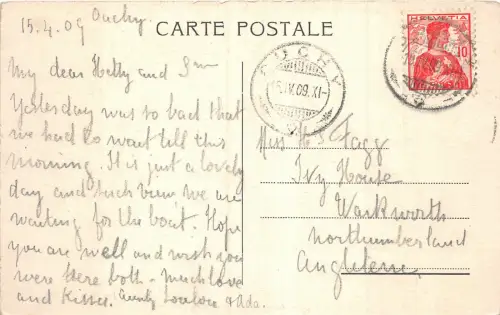 15.4.09 Ouchy.
CARTE POSTALE
HELVETIA
10
OUCHY
15.IV.09.XI-
My dear Hetty and
Yesterday was so bad that
we had to wait till this
morning. It is just a lovely
day and such view, we are
waiting for the boat. Hope
you are well and wish you
were there both - much love
and Kisses. Aunty & Ada.
Miss H Stagg
Ivy House
Warkworth
Northumberland